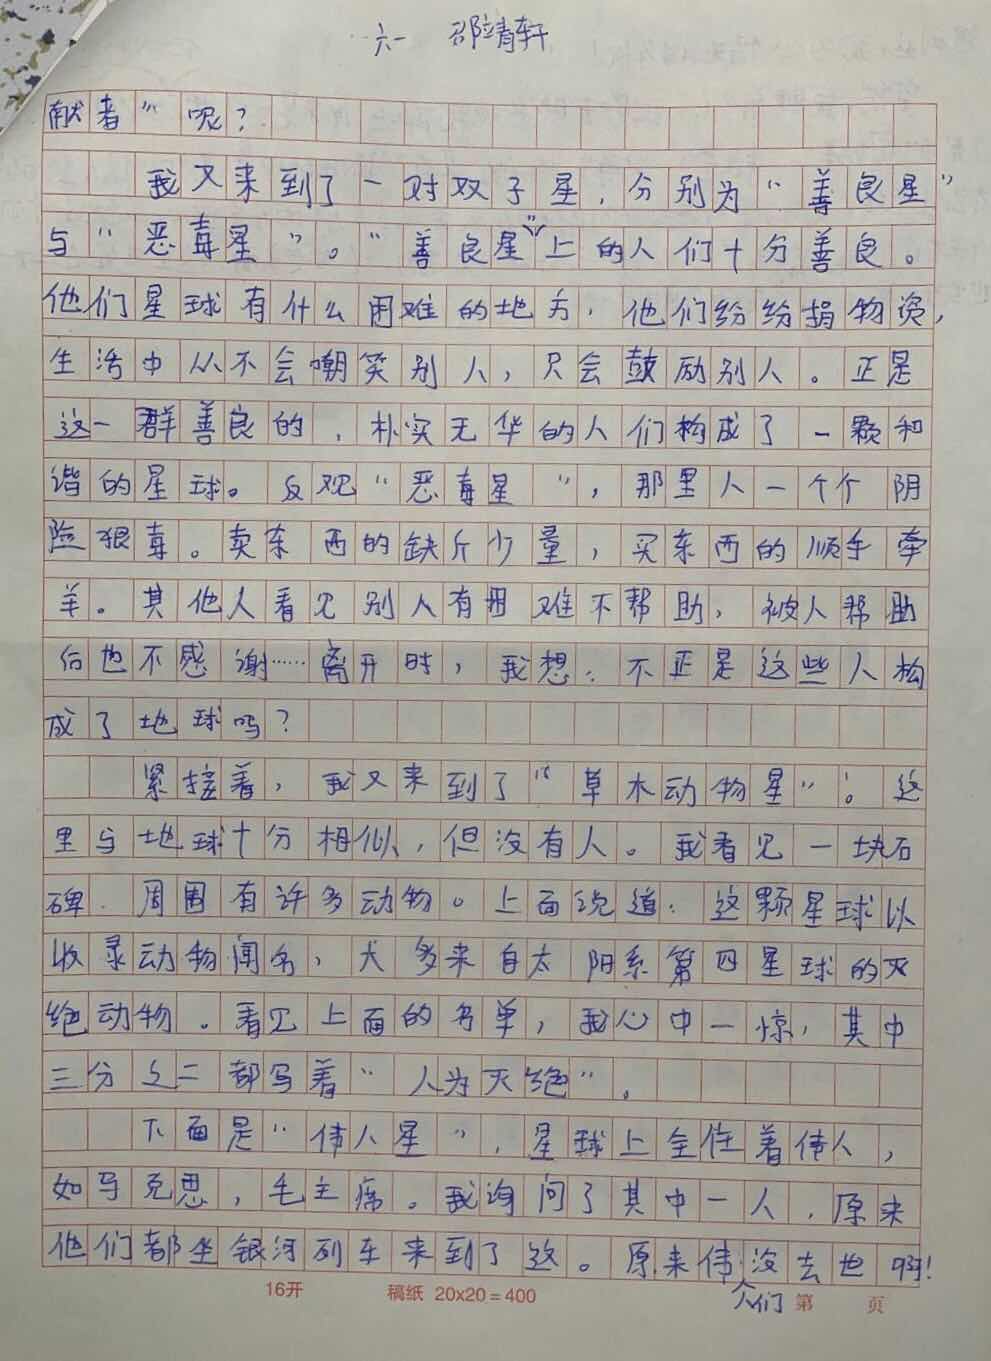 六一 邵靖轩
献者”呢？
我又来到了一对双子星，分别为“善良星”
与“恶毒星”。“善良星”上的人们十分善良。
他们星球有什么困难的地方，他们纷纷捐物资，
生活中从不会嘲笑别人，只会鼓励别人。正是
这一群善良的，朴实无华的人们构成了一颗和
谐的星球。反观“恶毒星”，那里人一个个阴
险狠毒。卖东西的缺斤少量，买东西的顺手牵
羊。其他人看见别人有困难不帮助，被人帮助
后也不感谢……离开时，我想：不正是这些人构
成了地球吗？
紧接着，我又来到了“草木动物星”。这
里与地球十分相似，但没有人。我看见一块石
碑．周围有许多动物。上面说道：这颗星球以
收录动物闻名，大多来自太阳系第四星球的灭
绝动物。看见上面的名单，我心中一惊，其中
三分之二都写着“人为灭绝”．
下面是“伟人星”，星球上全住着伟人，
如马克思，毛主席。我询问了其中一人，原来
他们都坐银河列车来到了这。原来伟人们没去世啊！
16开 稿纸 20x20=400 第 页